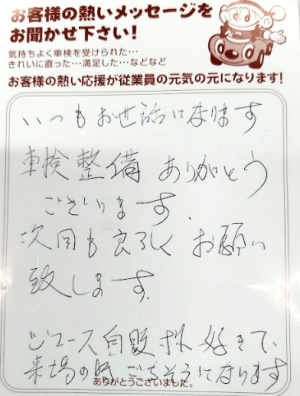 お客様の熱いメッセージを
お聞かせ下さい!
気持ちよく車検を受けられた…
きれいに直った…満足した…などなど
お客様の熱い応援が従業員の元気の元になります!
いつもお世話になります
車検整備 ありがとう
ございます.
次回も良ろしく お願い
致します.
ジュース自販 好きで、
来場の時 ごちそうになります
ありがとうございました。